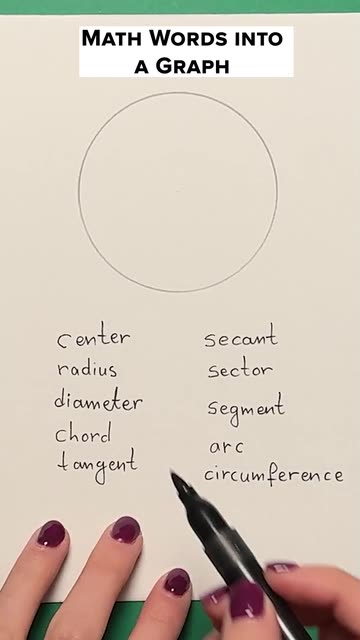 MATH WORDS INTO
A GRAPH
center
radius
diameter
chord
tangent
secant
sector
segment
arc
circumference